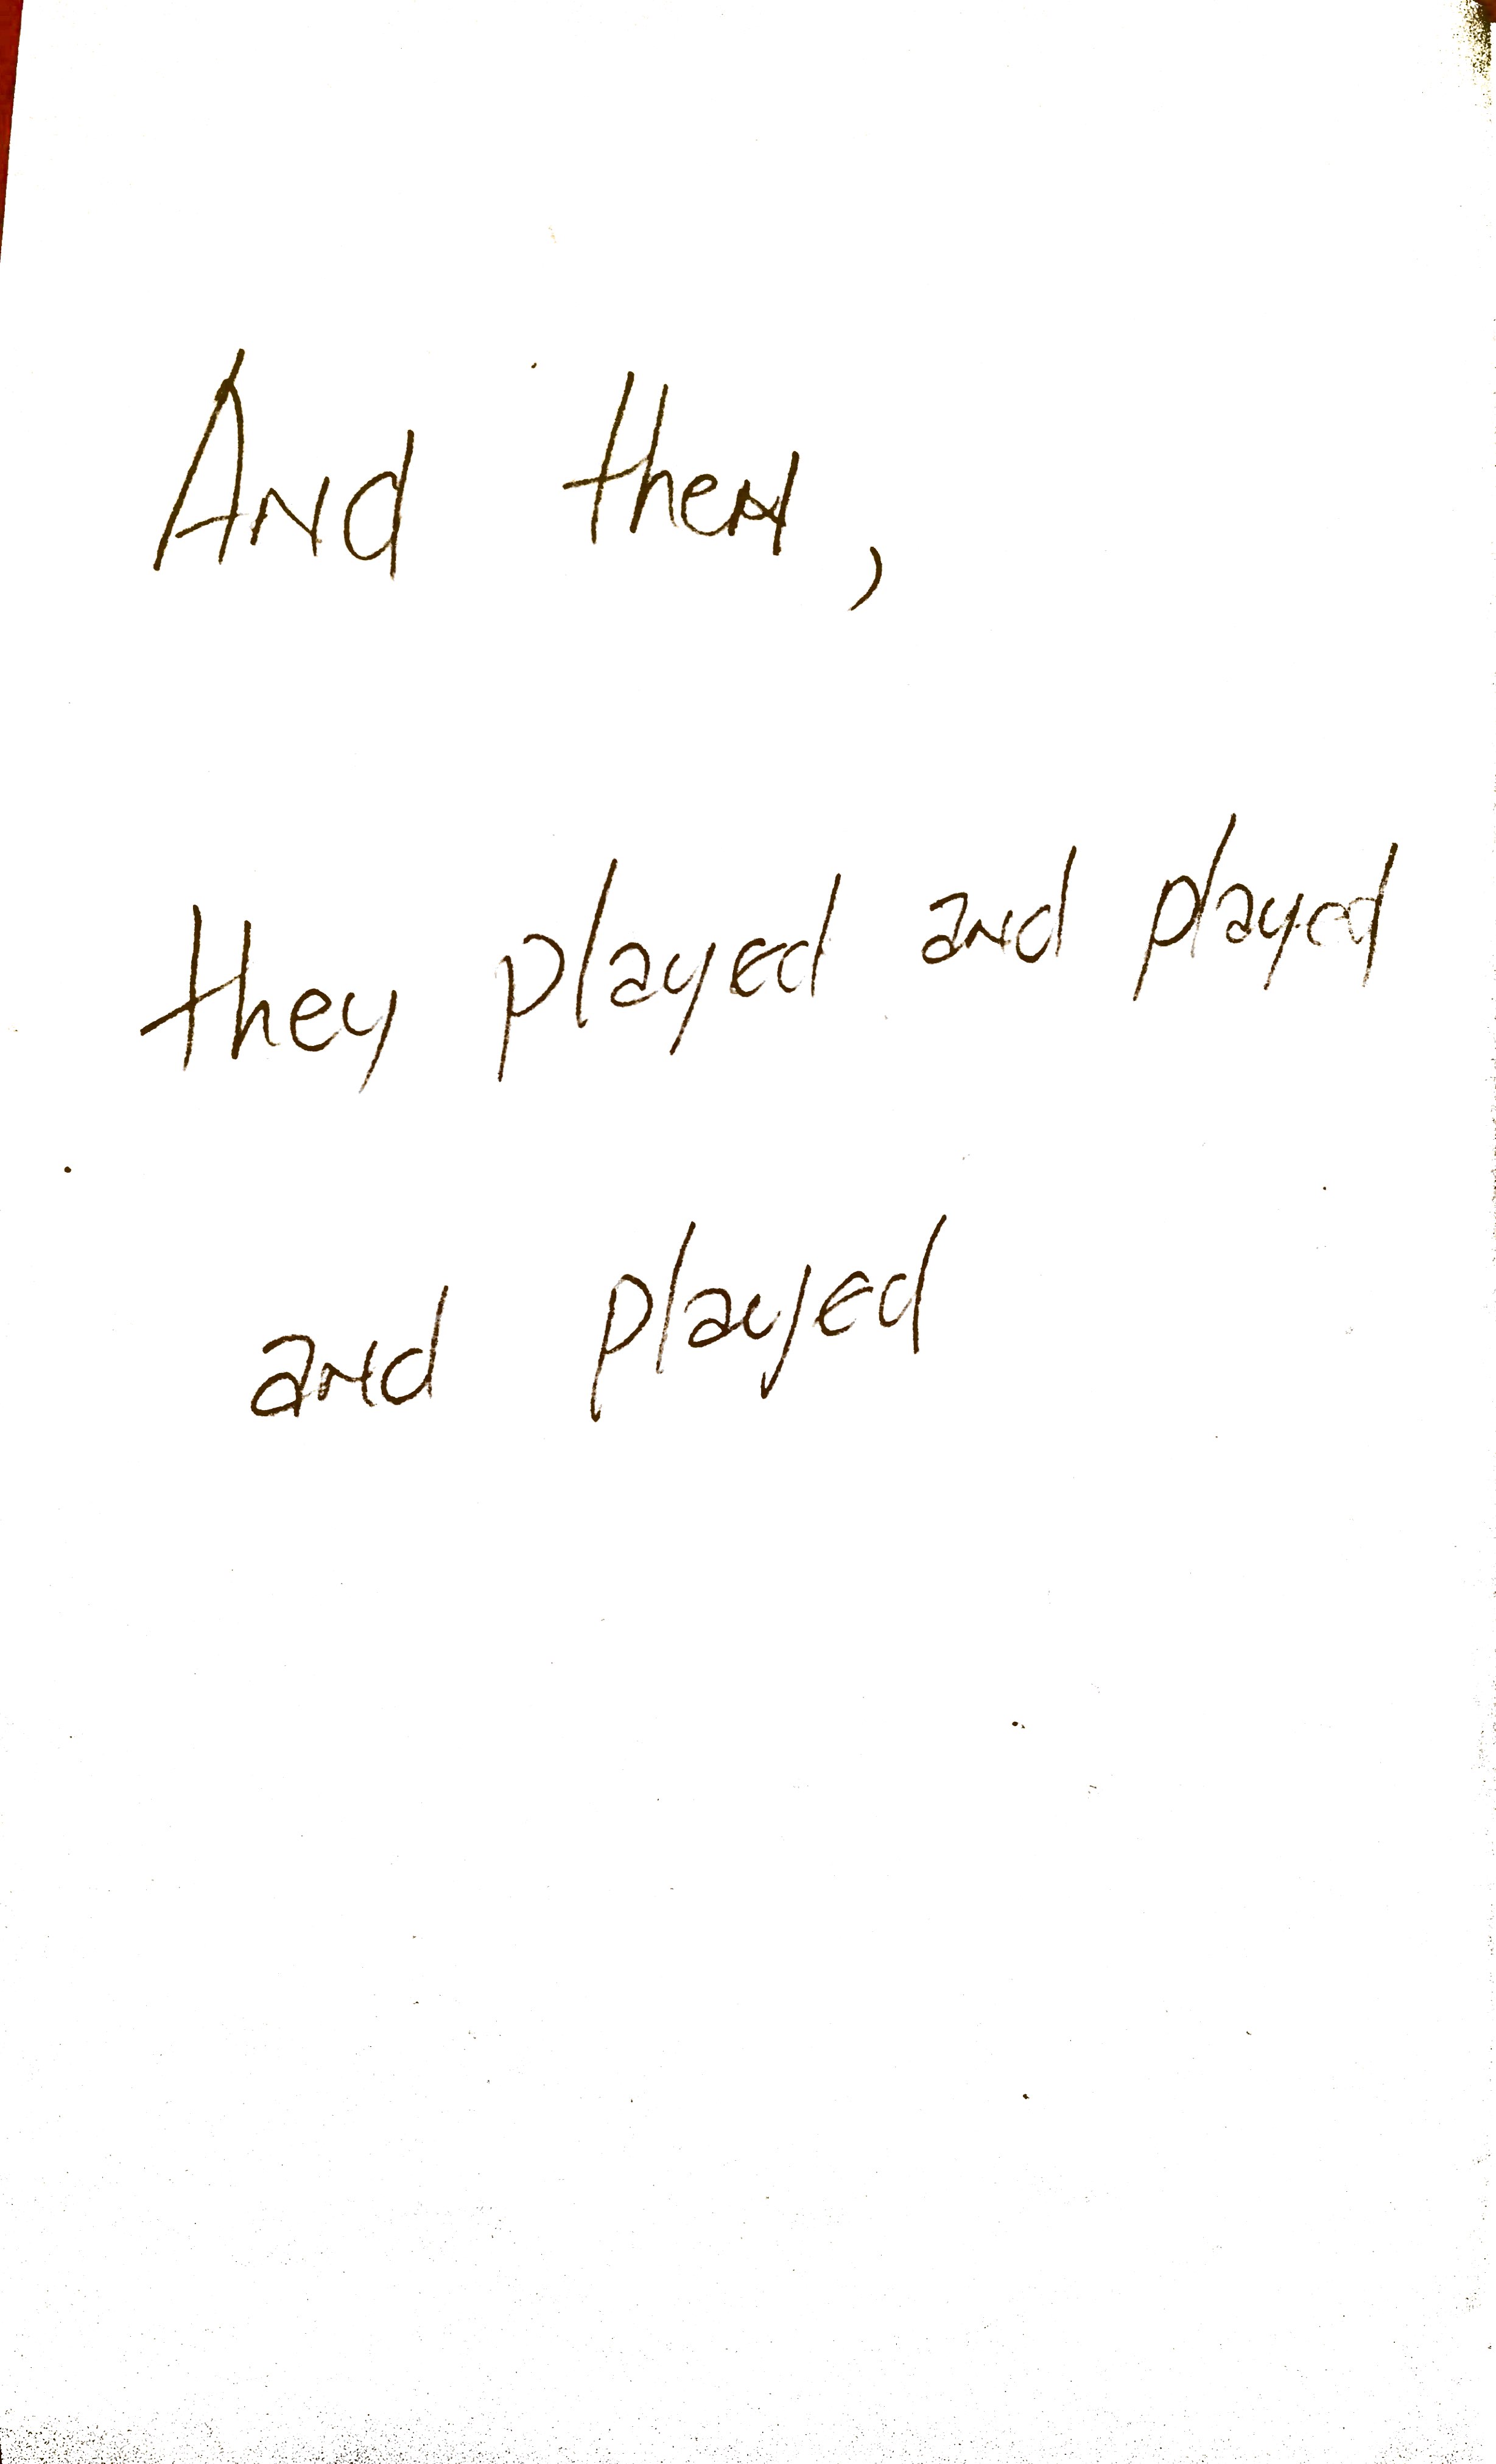 And then,
they played and played
and played